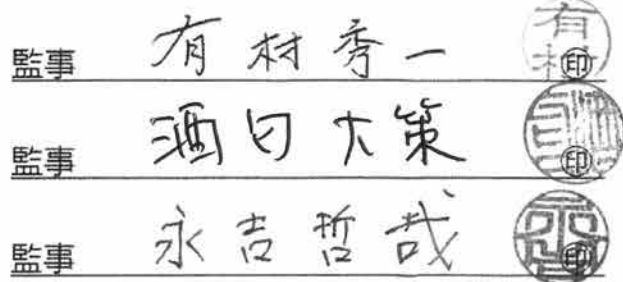 監事 有村秀一 有村 ㊞
監事 酒匂大策 ㊞
監事 永吉哲哉 ㊞